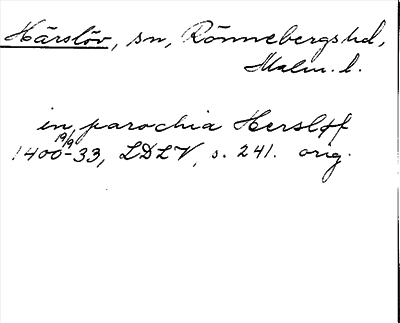 Härslöv, sn, Rönnebergs hd,
Malm. l.
in parochia Hersløff
19/9
1400-33, LDLV, s. 241. orig.